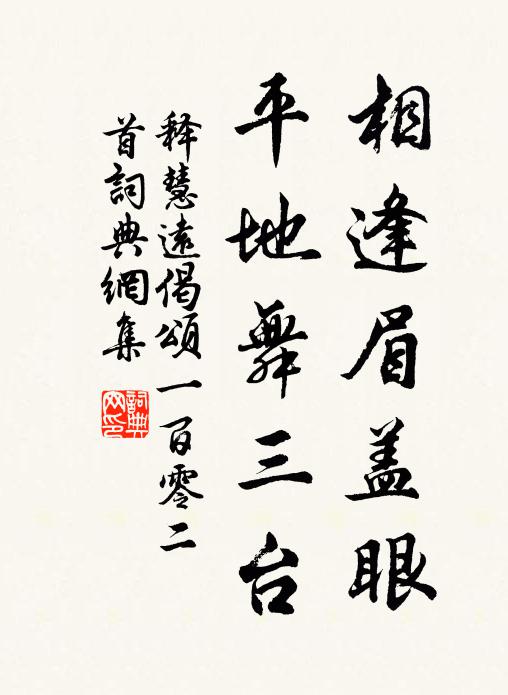 相逢眉盖眼
平地舞三台
释慧遠偈頌一百零二
首詞典網集
詞典
网印